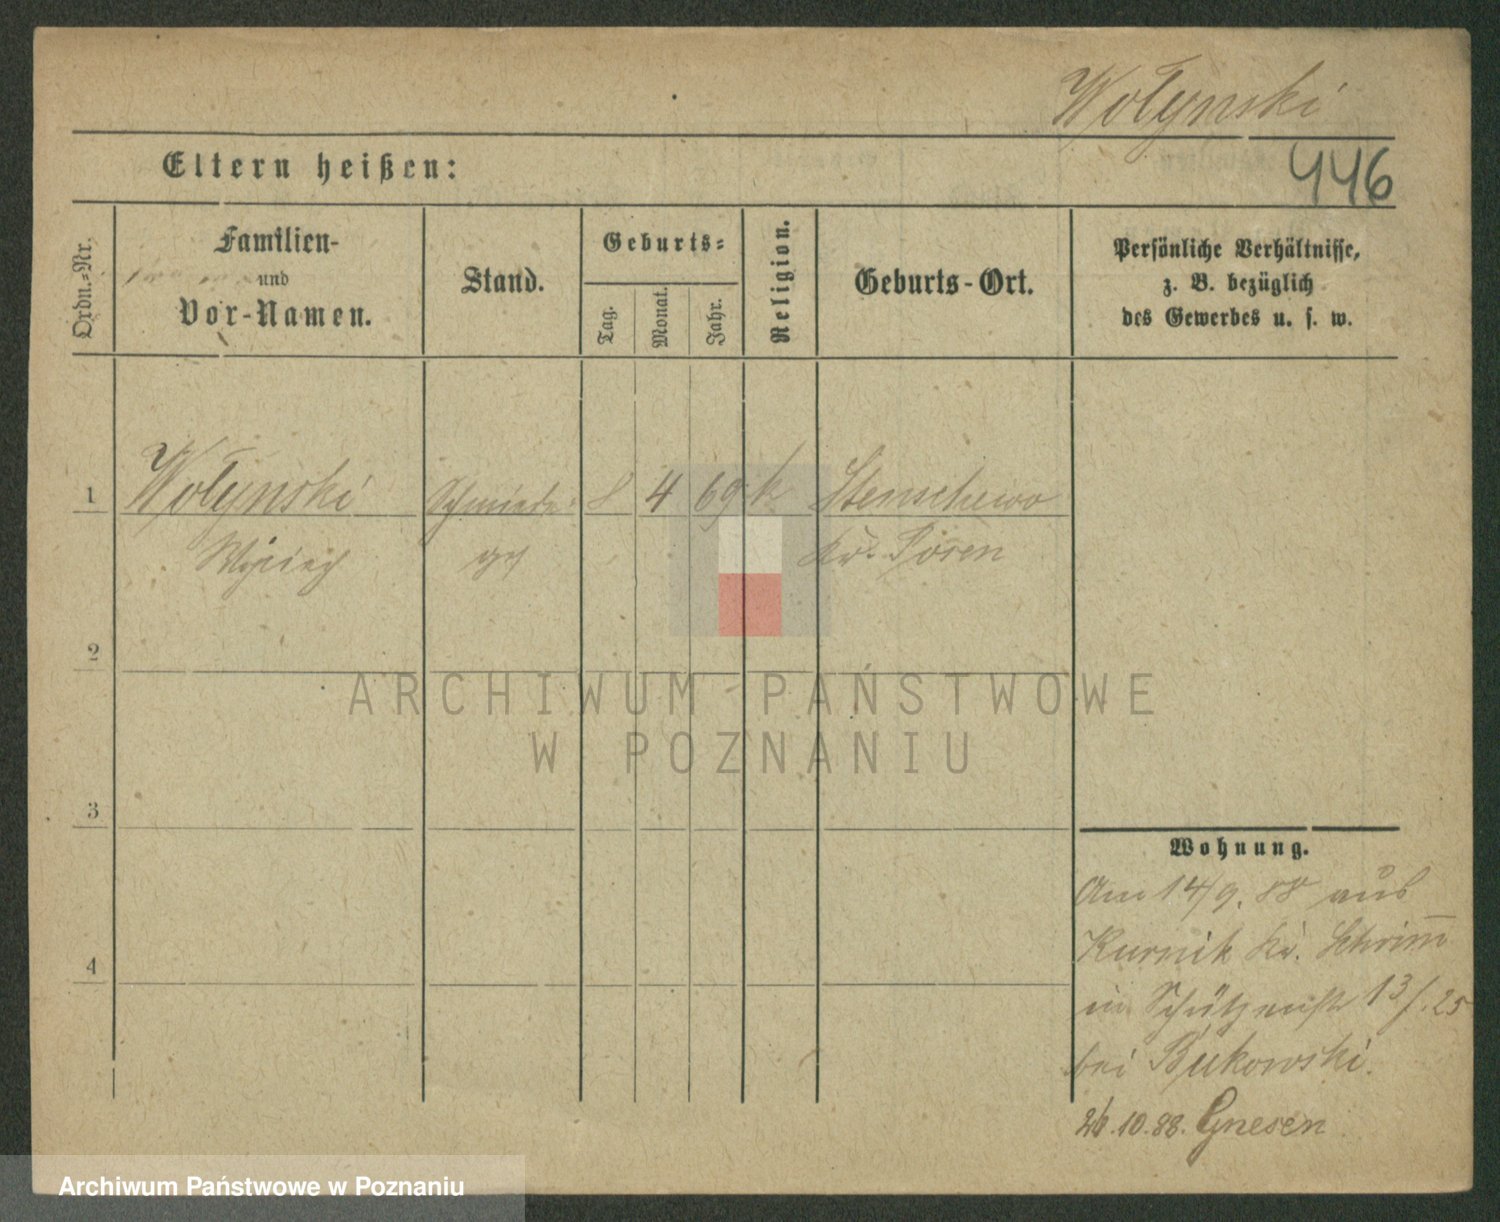 Wołynski
Eltern heißen:
446
Ordn.-Nr.
Familien-
und
Vor-Namen.
Stand.
Geburts-
Tag.
Monat.
Jahr.
Religion.
Geburts-Ort.
Persönliche Verhältnisse,
z. B. bezüglich
des Gewerbes u. s. w.
1 Wołynski Schmiede- 8 4 69 k Stenschewo
Kr. Posen
2
3
4
ARCHIWUM PAŃSTWOWE
W POZNANIU
Wohnung.
Am 14/9. 88 aus
Kurnik Kr. Schrim̅
in Schützenstr 13/. 25
bei Bukowski.
26.10.88. Gnesen
Archiwum Państwowe w Poznaniu